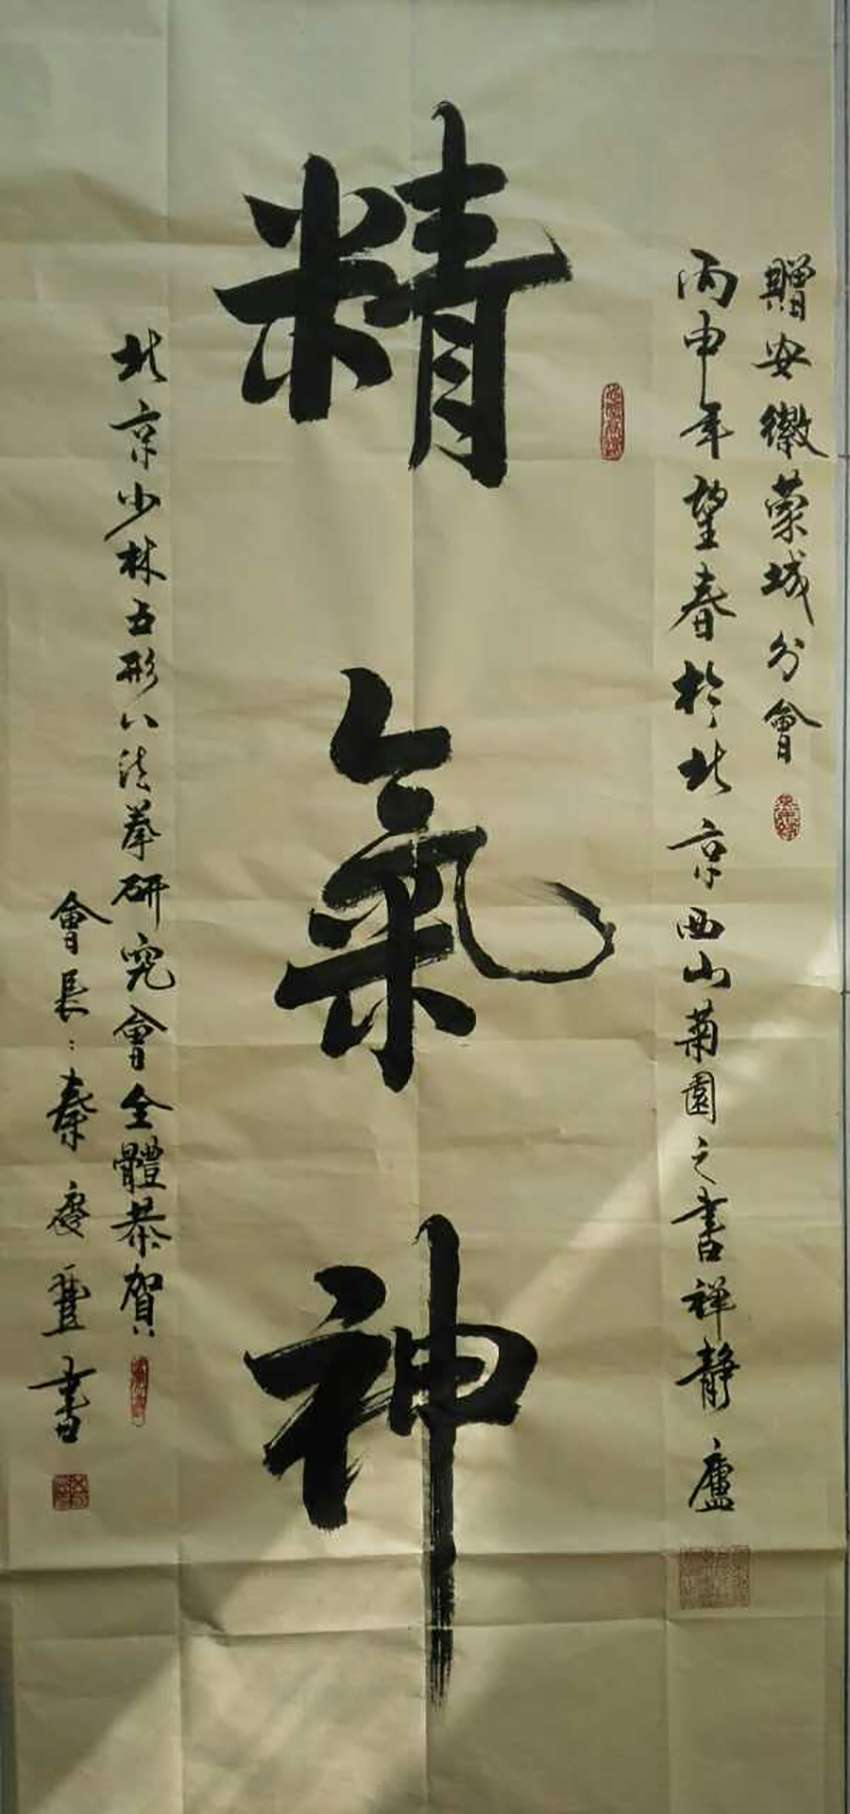 贈安徽蒙城分會
丙申年望春於北京西山菊園之書禅静廬
精氣神
北京少林五形八法拳研究會全體恭賀
會長：秦慶豐書